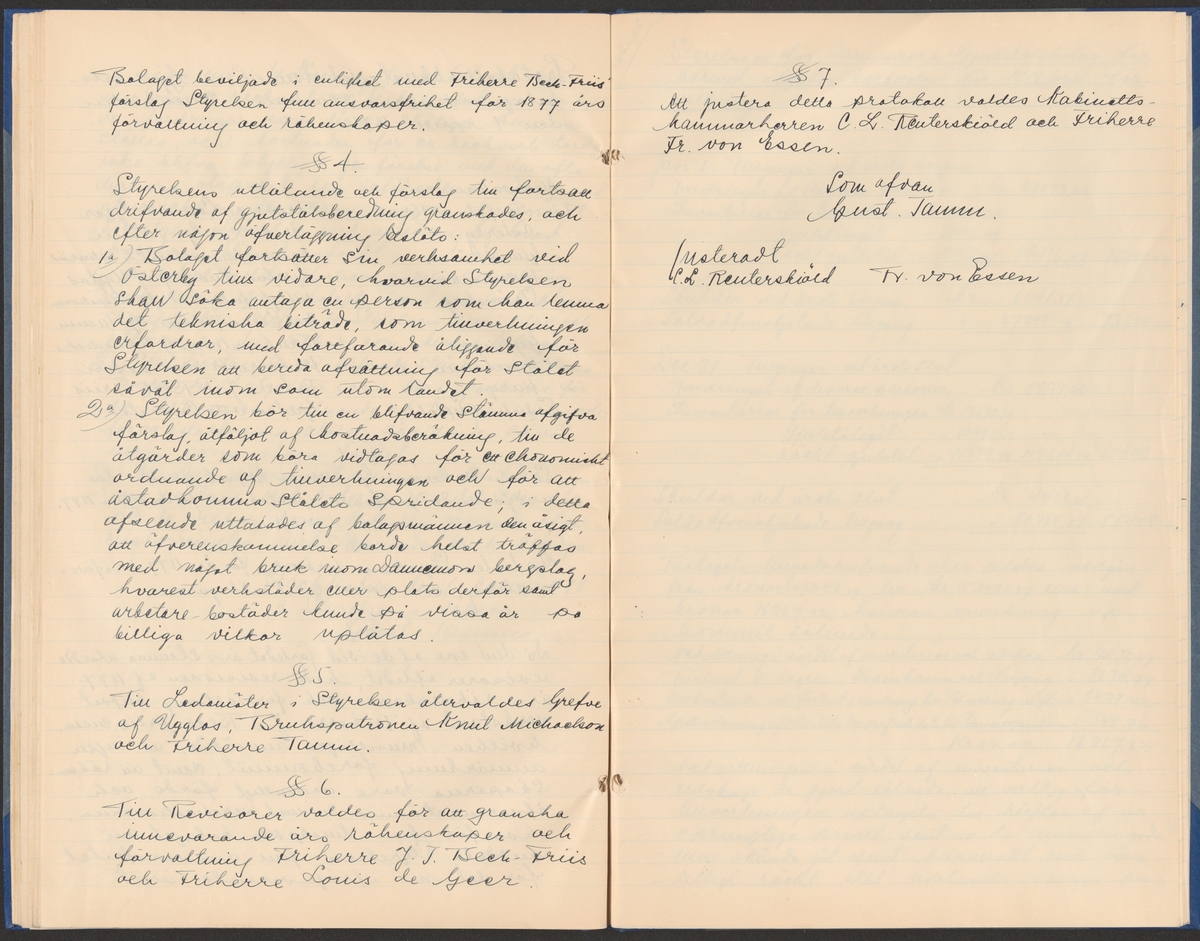 Bolaget beviljade i enlighet med Friherre Beck-Friis'
förslag Styrelsen full ansvarsfrihet för 1877 års
förvaltning och räkenskaper.
§ 4.
Styrelsens utlåtande och förslag till fortsatt
drifvande af gjutstålsberedning granskades, och
efter någon öfverläggning beslöts:
1o) Bolaget fortsätter sin verksamhet vid
Österby tills vidare, hvarvid Styrelsen
skall söka antaga en person som kan lemna
det tekniska biträde, som tillverkningen
erfordrar, med fortfarande åliggande för
Styrelsen att bereda afsättning för Stålet
såväl inom som utom landet.
2o) Styrelsen bör till en blifvande Stämma afgifva
förslag, åtföljdt af kostnadsberäkning, till de
åtgärder som böra vidtagas för ett ekonomiskt
ordnande af tillverkningen och för att
åstadkomma Stålets Spridande; i detta
afseende uttalades af bolagsmännen den åsigt,
att öfverenskommelse borde helst träffas
med något bruk inom Dannemora bergslag,
hvarest verkstäder eller plats derför samt
arbetare-bostäder kunde på vissa år på
billiga vilkor uplåtas.
§ 5.
Till Ledamöter i Styrelsen återvaldes Grefve
af Ugglas, Brukspatronen Knut Michaelson
och Friherre Tamm.
§ 6.
Till Revisorer valdes för att granska
innevarande års räkenskaper och
förvaltning Friherre J. T. Beck-Friis
och Friherre Louis de Geer.
§ 7.
Att justera detta protokoll valdes Kabinetts-
kammarherren C. L. Reuterskiöld och Friherre
Fr. von Essen.
Som ofvan
Gust. Tamm.
Justeradt
C. L. Reuterskiöld Fr. von Essen